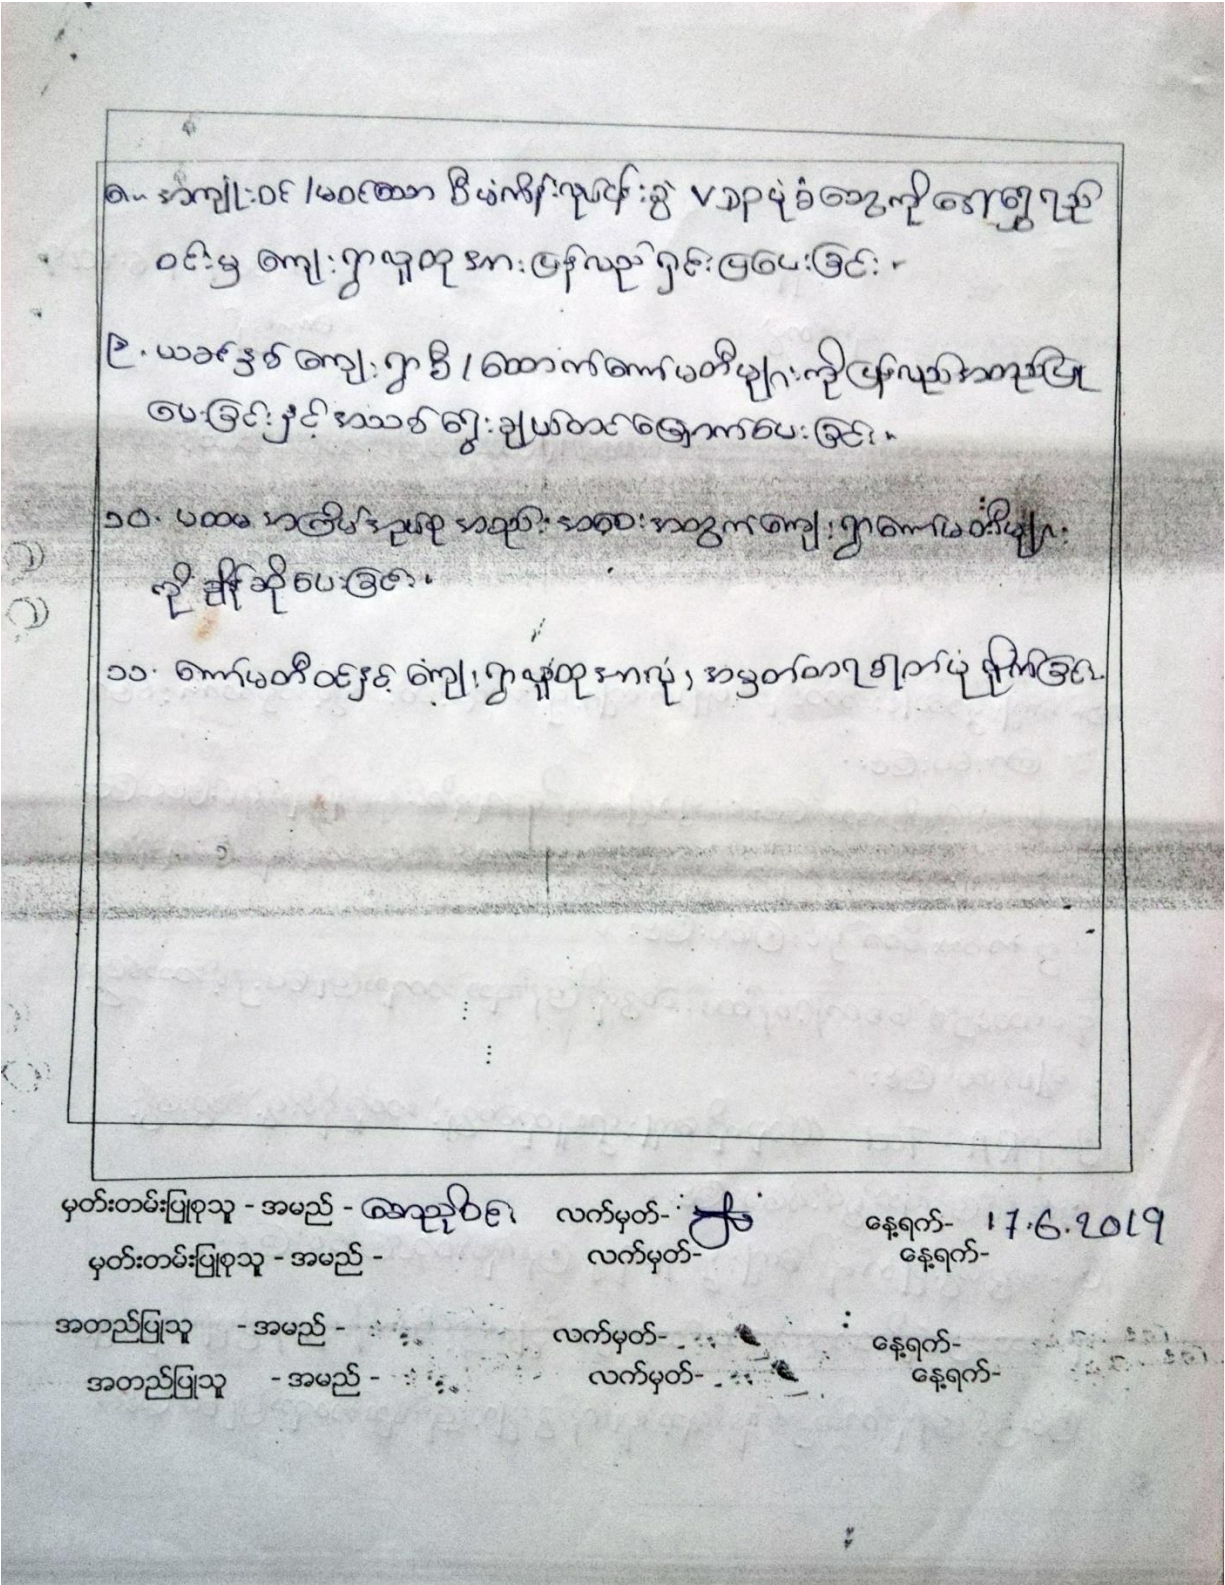 ၈. အကျုံးဝင်/မဝင်သော စီမံကိန်းလုပ်ငန်းခွဲ VDP ပုံစံတွေကို ဒေါ်ရွှေရည်
ဝင်းမှ ကျေးရွာလူထုအားပြန်လည်ရှင်းပြပေးခြင်း။
၉. ယခင်နှစ်ကျေးရွာစီ/ထောက်ကော်မတီများကိုပြန်လည်အတည်ပြု
ပေးခြင်းနှင့်အသစ်ရွေးချယ်တင်မြှောက်ပေးခြင်း။
၁၀. ပထမအကြိမ်အုပ်စုအစည်းအဝေးအတွက်ကျေးရွာကော်မတီများ
ကိုချိန်းဆိုပေးခြင်း။
၁၁. ကော်မတီဝင်နှင့်ကျေးရွာလူထုအားလုံး အမှတ်တရဓါတ်ပုံရိုက်ခြင်း။
မှတ်းတမ်းပြုစုသူ - အမည် - လက်မှတ်- နေ့ရက်- 17.6.2019
မှတ်းတမ်းပြုစုသူ - အမည် - လက်မှတ်- နေ့ရက်-
အတည်ပြုသူ - အမည် - လက်မှတ်- နေ့ရက်-
အတည်ပြုသူ - အမည် - လက်မှတ်- နေ့ရက်-